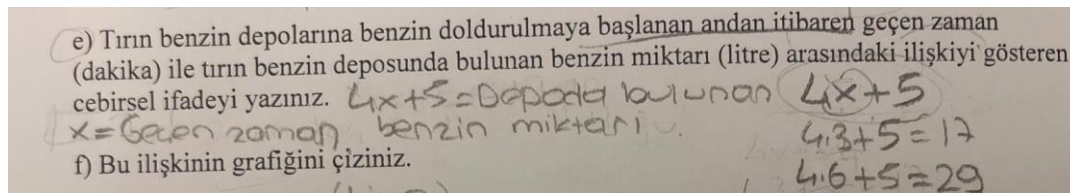 e) Tırın benzin depolarına benzin doldurulmaya başlanan andan itibaren geçen zaman
(dakika) ile tırın benzin deposunda bulunan benzin miktarı (litre) arasındaki ilişkiyi gösteren
cebirsel ifadeyi yazınız. 4x+5=Depoda bulunan 4x+5
x=Geçen zaman benzin miktarı 4.3+5=17
f) Bu ilişkinin grafiğini çiziniz. 4.6+5=29